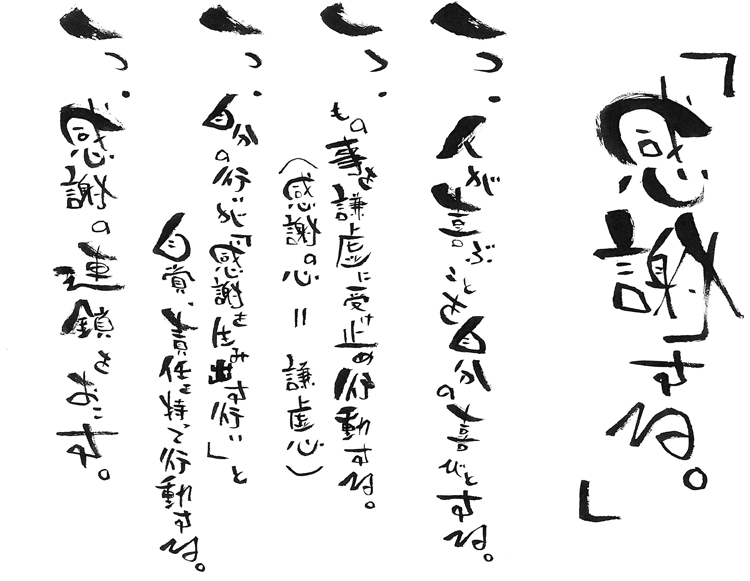 「「感謝」する。」
一つ.人が喜ぶことを自分の喜びとする。
一つ.もの事を謙虚に受け止め行動する。
(感謝の心=謙虚心)
一つ.自分の行いが「感謝を生み出す行い」と
自覚、責任を持って行動する。
一つ.感謝の連鎖をおこす。